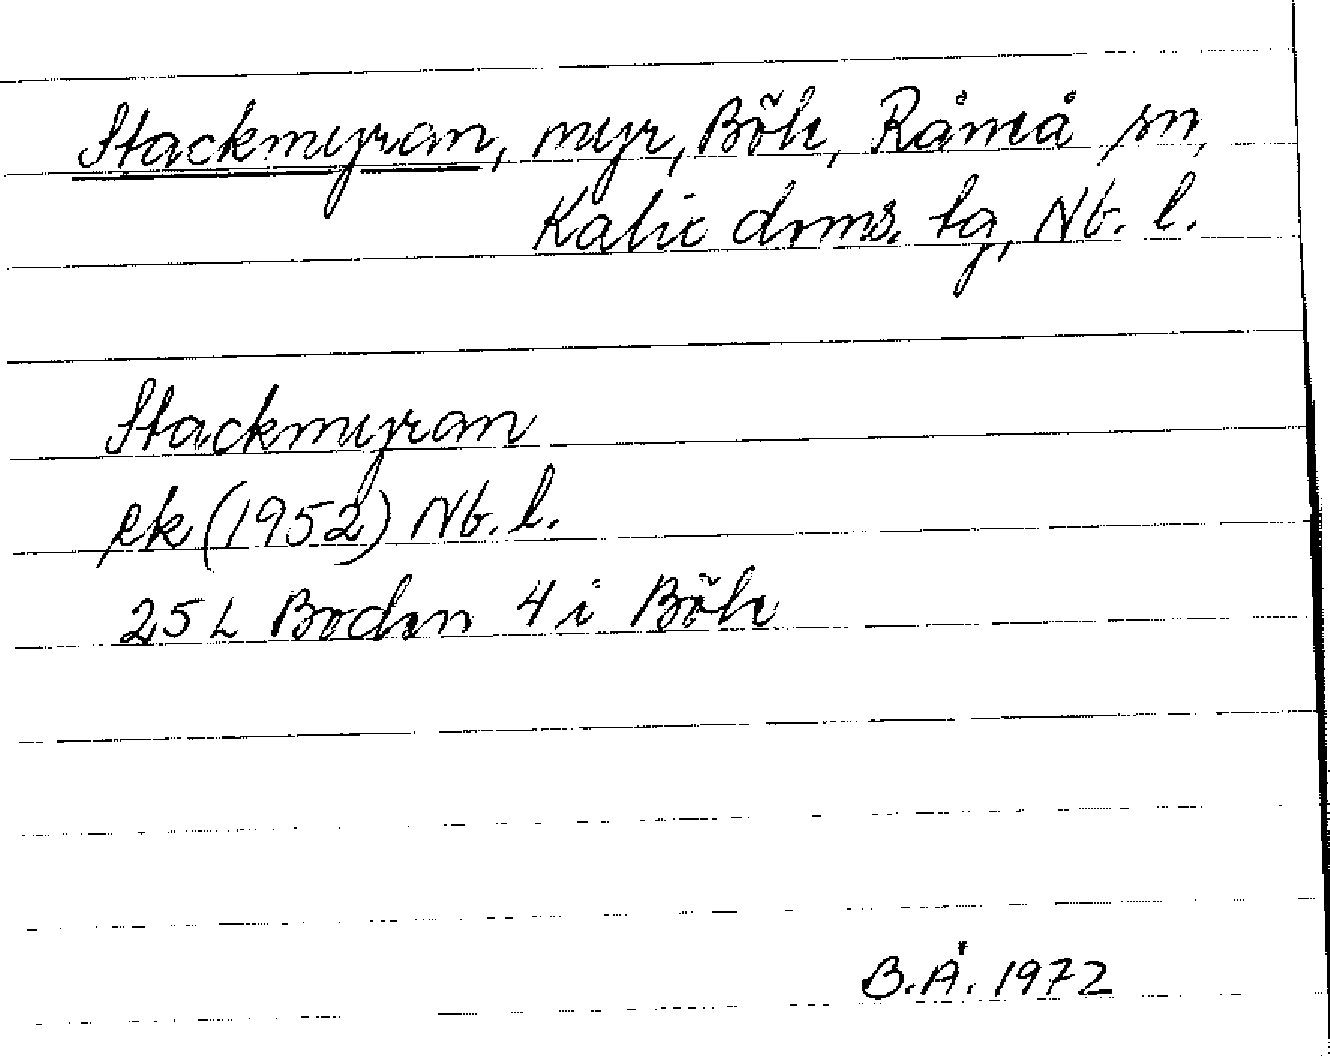 Stackmyran, myr, Böle, Råneå sn,
Kalix dms. lg, Nb. l.
Stackmyran
ek (1952) Nb. l.
25 L Boden 4 i Böle
B.Å. 1972